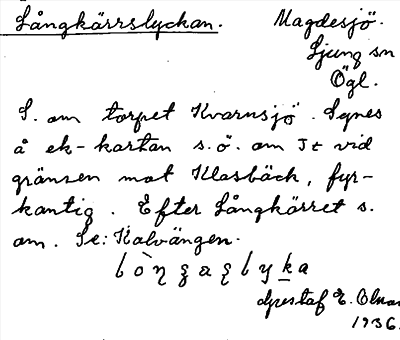 Långkärrslyckan. Magdesjö.
Ljung sn
Ögl.
S. om torpet Kvarnsjö. Synes
å ek-kartan s.ö. om Jt vid
gränsen mot Klasbäck, fyr-
kantig. Efter Långkärret s.
om. Se: Kalvängen.
Gustaf E. Olmar
1936.